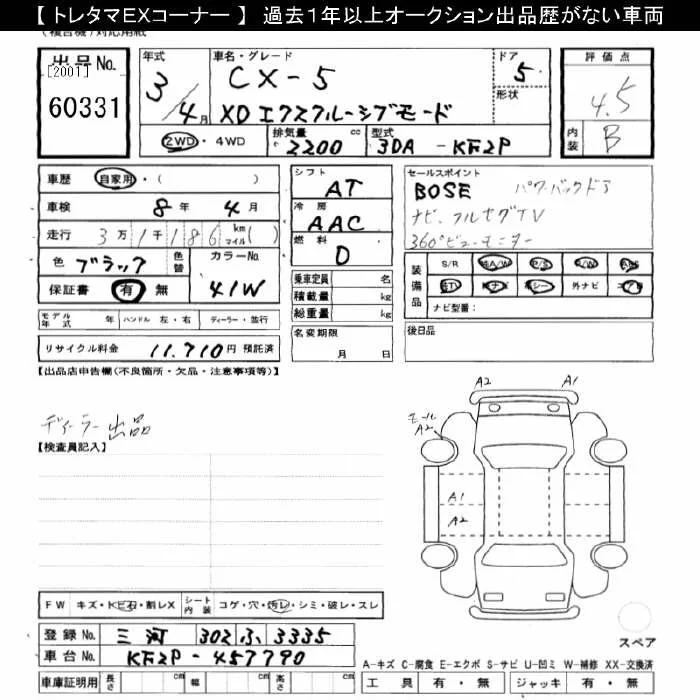 【 トレタマEXコーナー 】 過去1年以上オークション出品歴がない車両
出品No. [2001] 60331
年式 3/4月
車名・グレード CX-5
XD エクスクルーシブモード
ドア 5
形状
評価点 4.5
内装 B
2WD・4WD 排気量 2200 cc 型式 3DA-KF2P
車歴 自家用・( )
車検 8年 4月
走行 3万1千186 km マイル( )
色 ブラック 色替 カラーNo. 41W
保証書 有 無
モデル年式 年 ハンドル 左・右 ディーラー・並行
リサイクル料金 11,710円 預託済
シフト AT
冷房 AAC
燃料 D
乗車定員 名
積載量 kg
総重量 kg
名変期限
月 日
セールスポイント
BOSE パワーバックドア
ナビ、フルセグTV
360°ビューモニター
装備品 S/R A/W P/S P/W
ナビ 革シート 外ナビ
ナビ型番:
後日品
【出品店申告欄(不良箇所・欠品・注意事項等)】
ディーラー出品
【検査員記入】
A2 A1
モール A2
A1
A2
FW キズ・トビ石・割レX シート内装 コゲ・穴・汚レ・シミ・破レ・スレ
登録No. 三河 302 ふ 3335
車台No. KF2P-457790
車庫証明用 長さ cm 幅 cm 高さ cm
スペア
A-キズ C-腐食 E-エクボ S-サビ U-凹ミ W-補修 XX-交換済
工具 有・無 ジャッキ 有・無